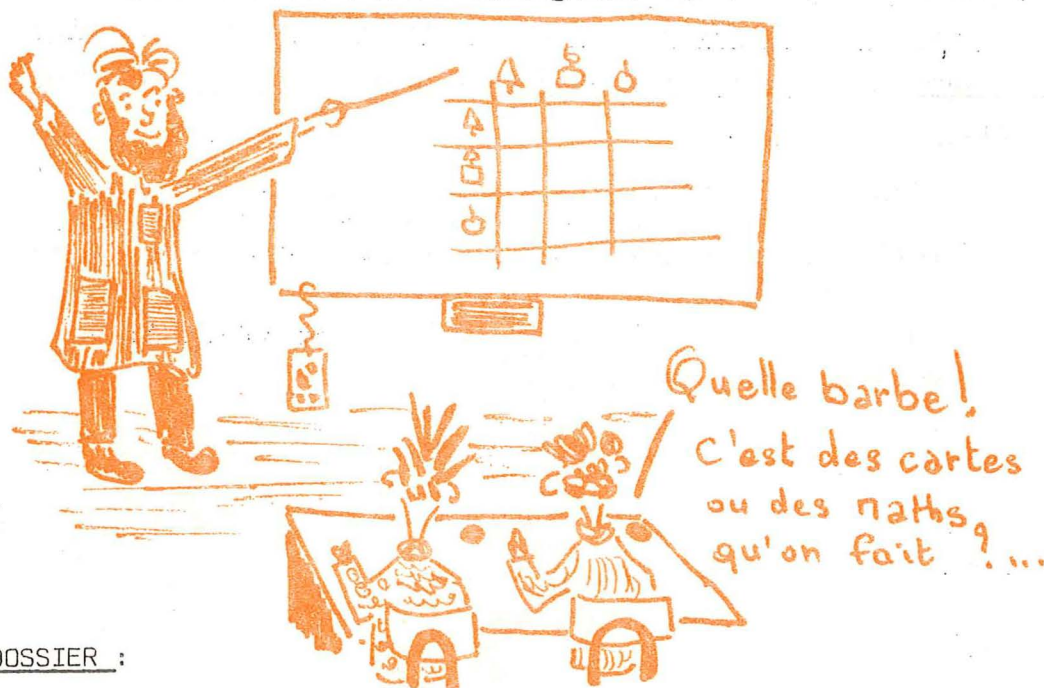 Quelle barbe!
C'est des cartes
ou des maths
qu'on fait ?...
DOSSIER :